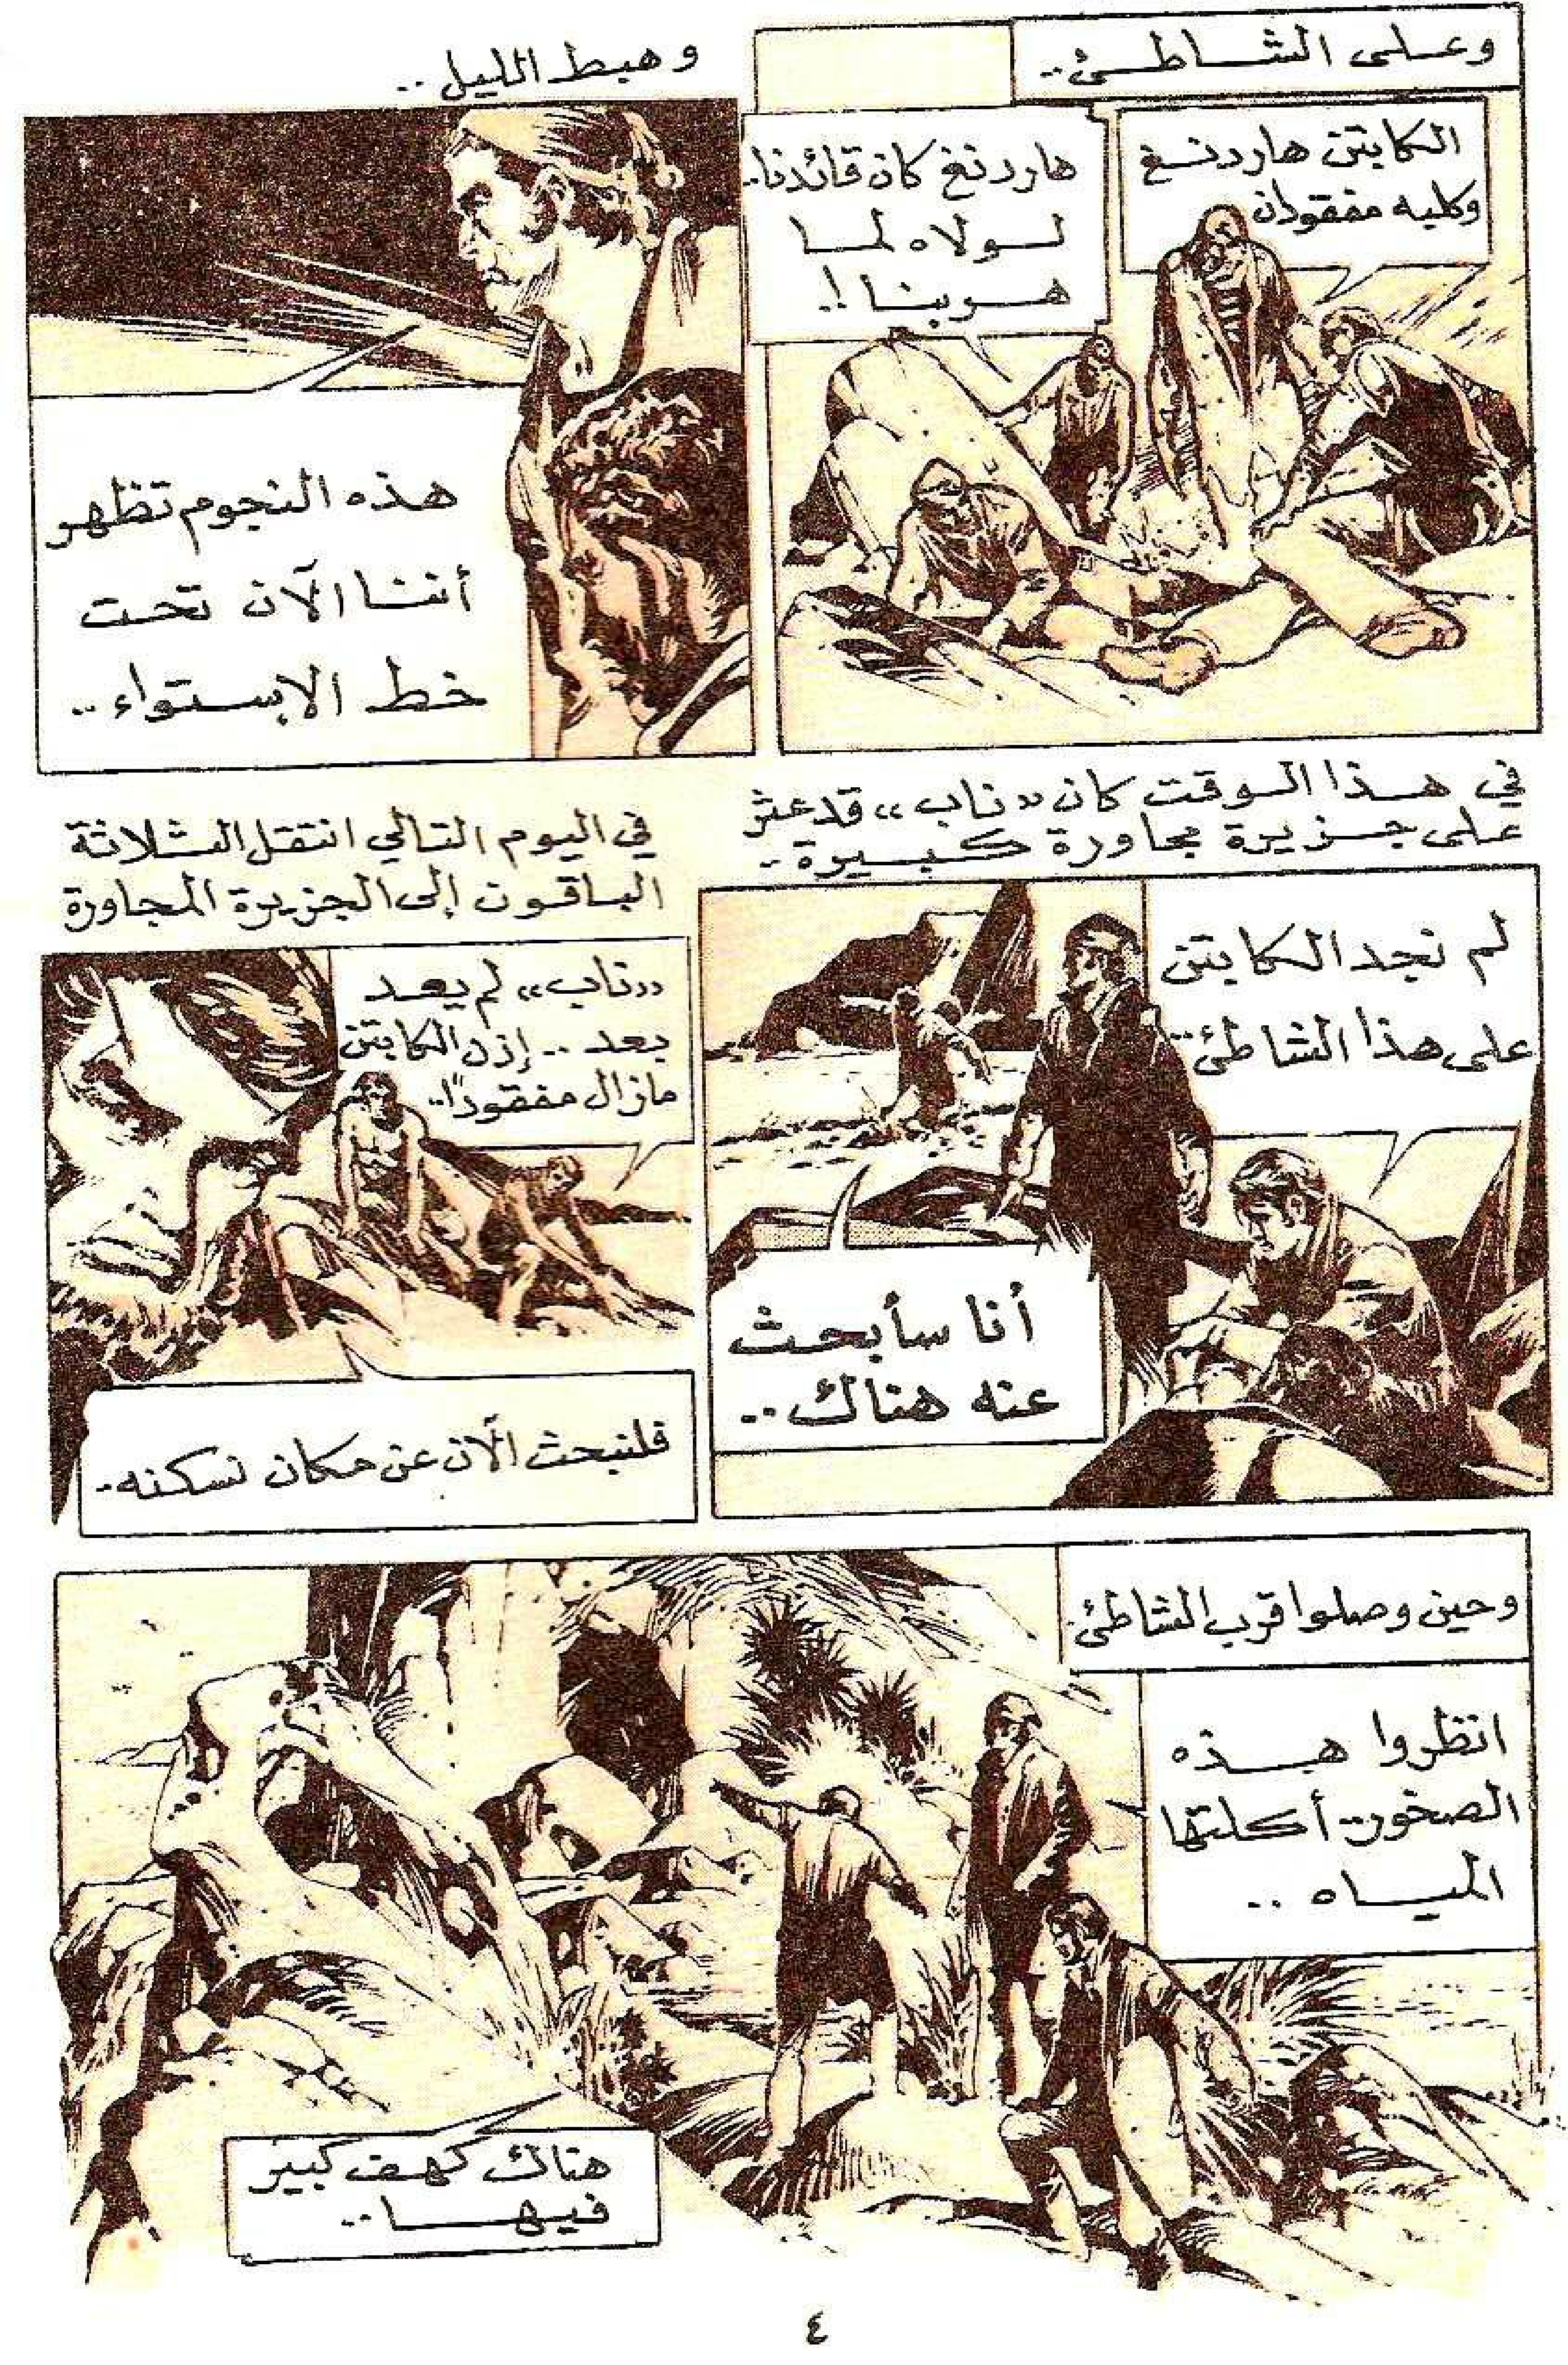 وعلى الشاطئ..
الكابتن هاردنغ
وكلبه مفقودان
هاردنغ كان قائدنا.
لولاه لما
هربنا!.
وهبط الليل..
هذه النجوم تظهر
أننا الآن تحت
خط الإستواء..
في هذا الوقت كان «ناب» قد عثر
على جزيرة مجاورة كبيرة..
لم نجد الكابتن
على هذا الشاطئ..
أنا سأبحث
عنه هناك..
في اليوم التالي انتقل الثلاثة
الباقون إلى الجزيرة المجاورة
«ناب» لم يعد
بعد.. إذن الكابتن
مازال مفقوداً..
فلنبحث الآن عن مكان نسكنه..
وحين وصلوا قرب الشاطئ.
انظروا هذه
الصخور.. أكلتها
المياه..
هناك كهف كبير
فيها..
٤